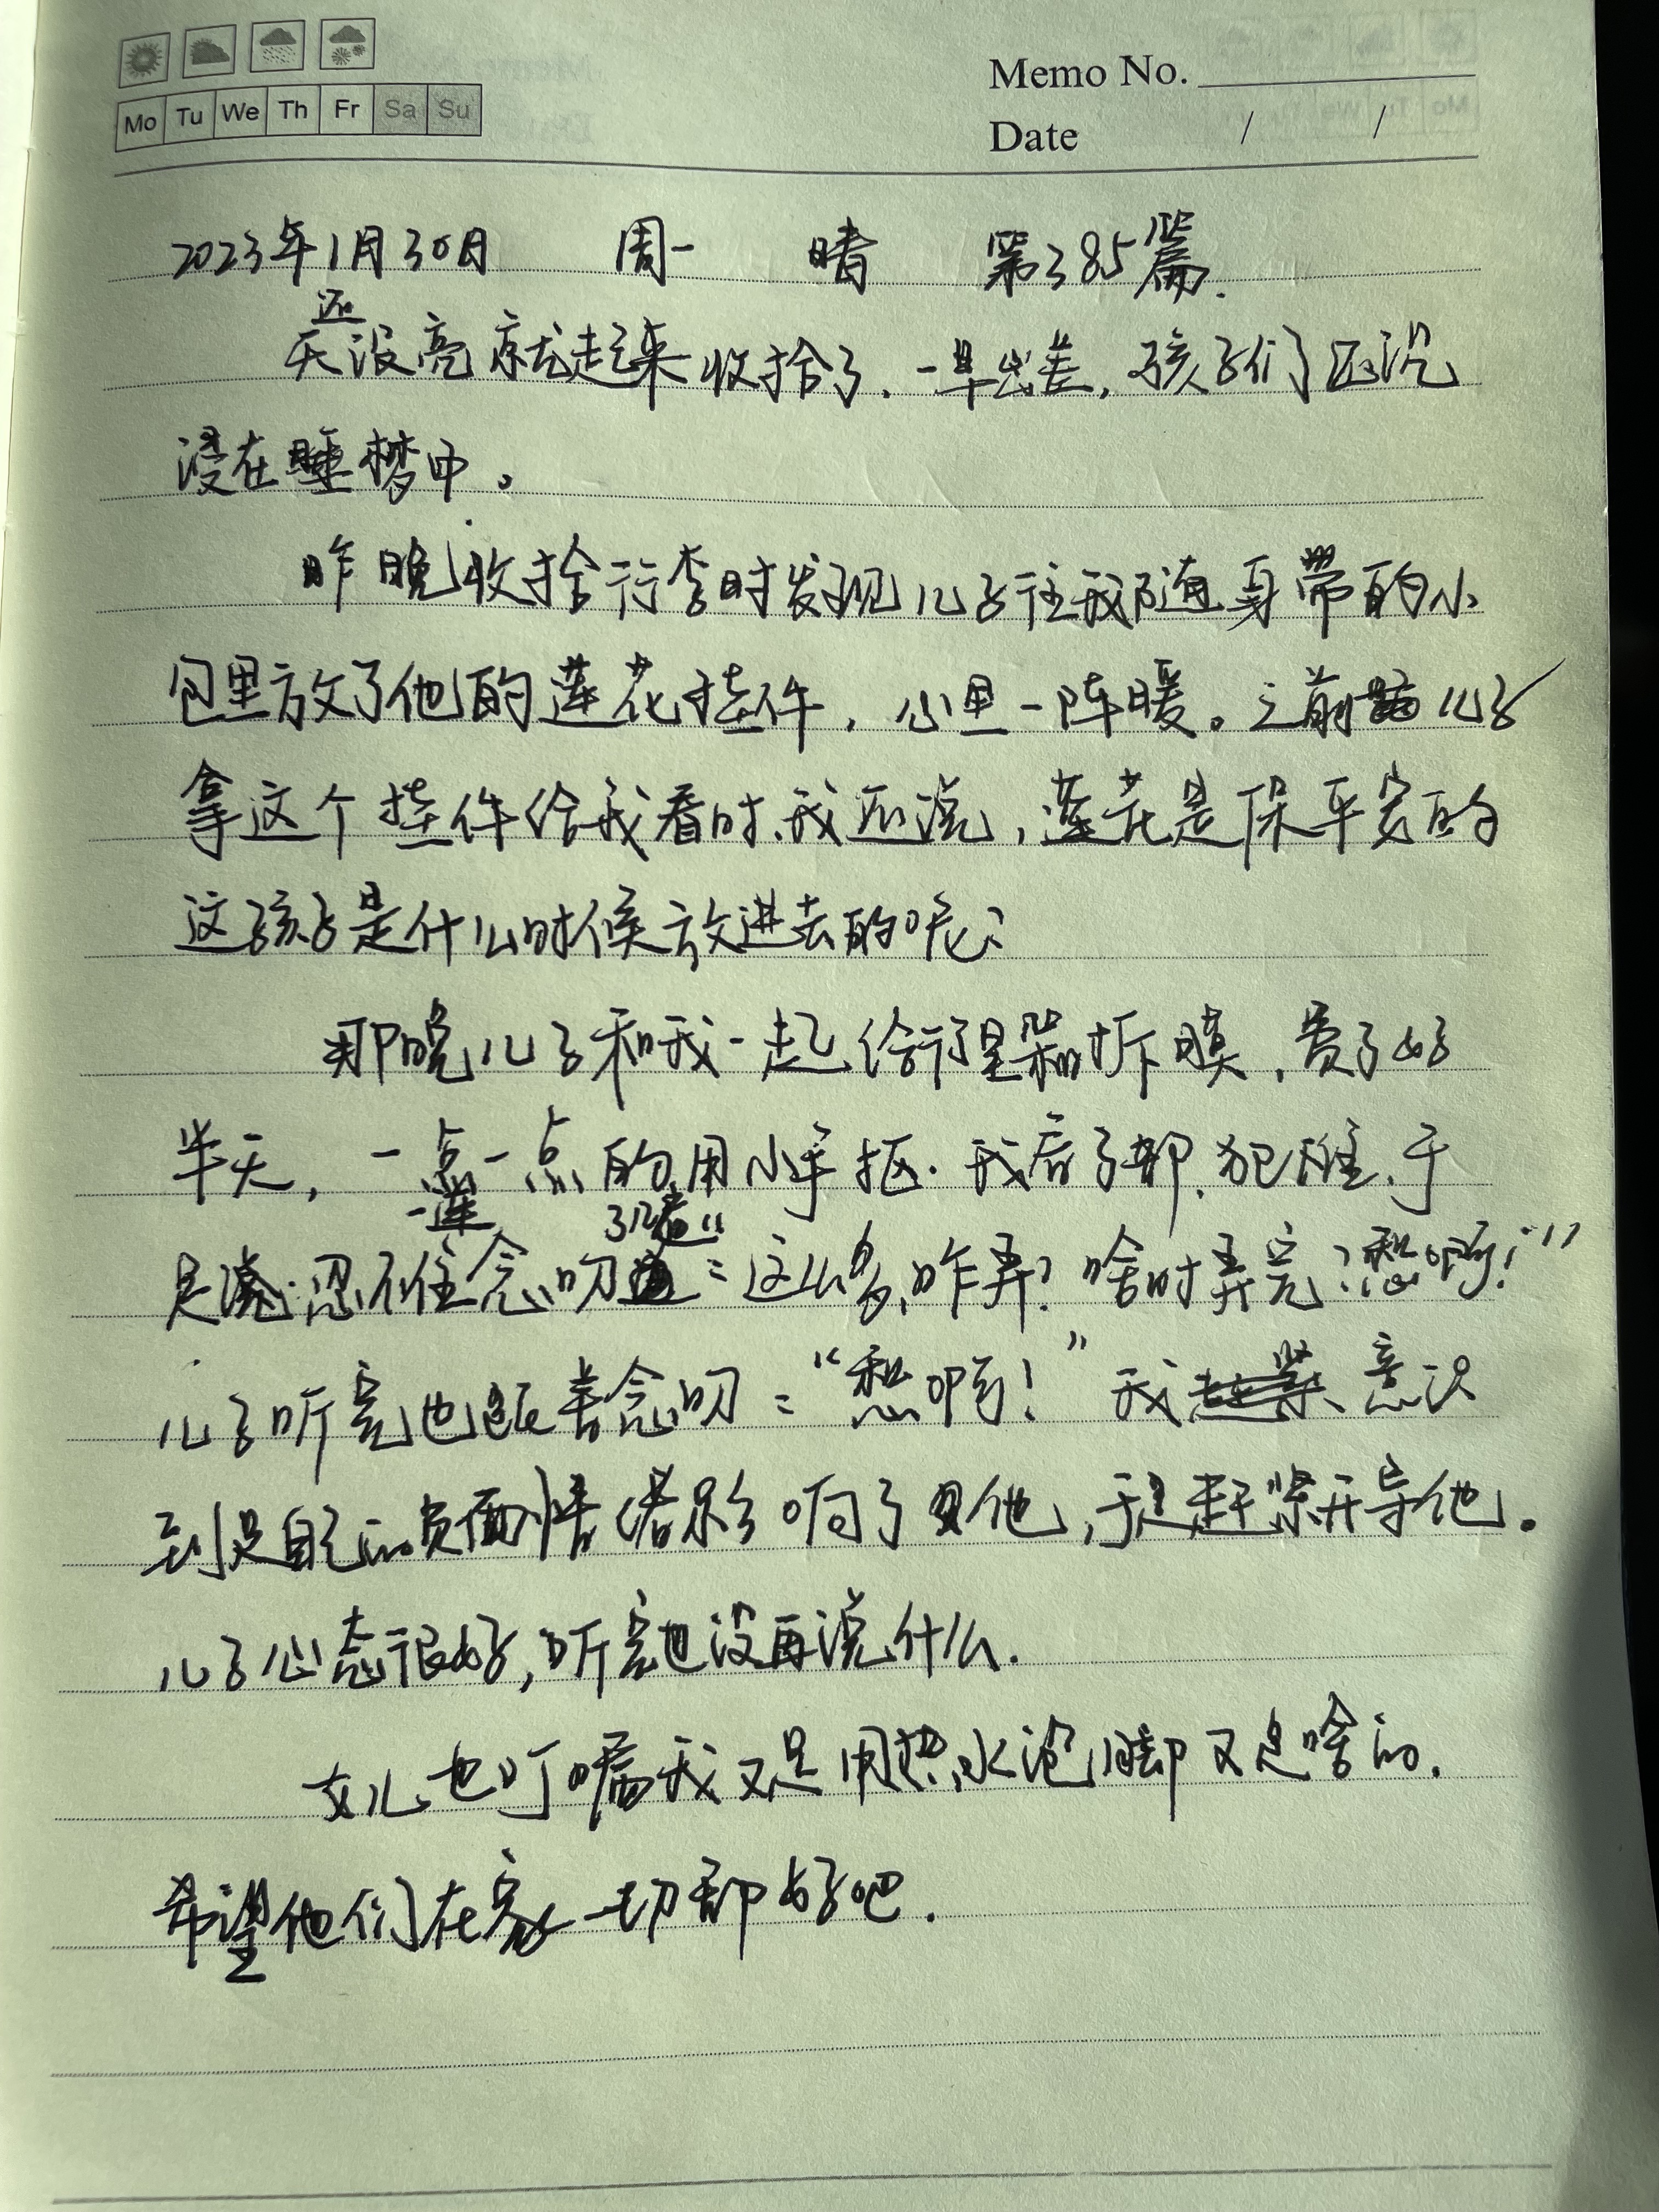 Memo No.
Mo Tu We Th Fr Sa Su
Date / /
2023年1月30日 周一 晴 第385篇.
天还没亮就起来收拾了.一早出差,孩子们还沉
浸在睡梦中。
昨晚收拾行李时发现儿子往我随身带的小
包里放了他的莲花挂件,心里一阵暖。之前儿子
拿这个挂件给我看时.我还说,莲花是保平安的
这孩子是什么时候放进去的呢?
那晚儿子和我一起给行李架拆膜,费了好
半天,一点一点的用小手抠.我看了都犯难.于
是忍不住念叨了几遍:“这么多,咋弄?啥时弄完?愁啊!”
儿子听完也跟着念叨:“愁啊!”我意识
到是自己的负面情绪影响了他,于是赶紧开导他。
儿子心态很好,听完也没再说什么.
女儿也叮嘱我又是用热水泡脚又是啥的.
希望他们在家一切都好吧.